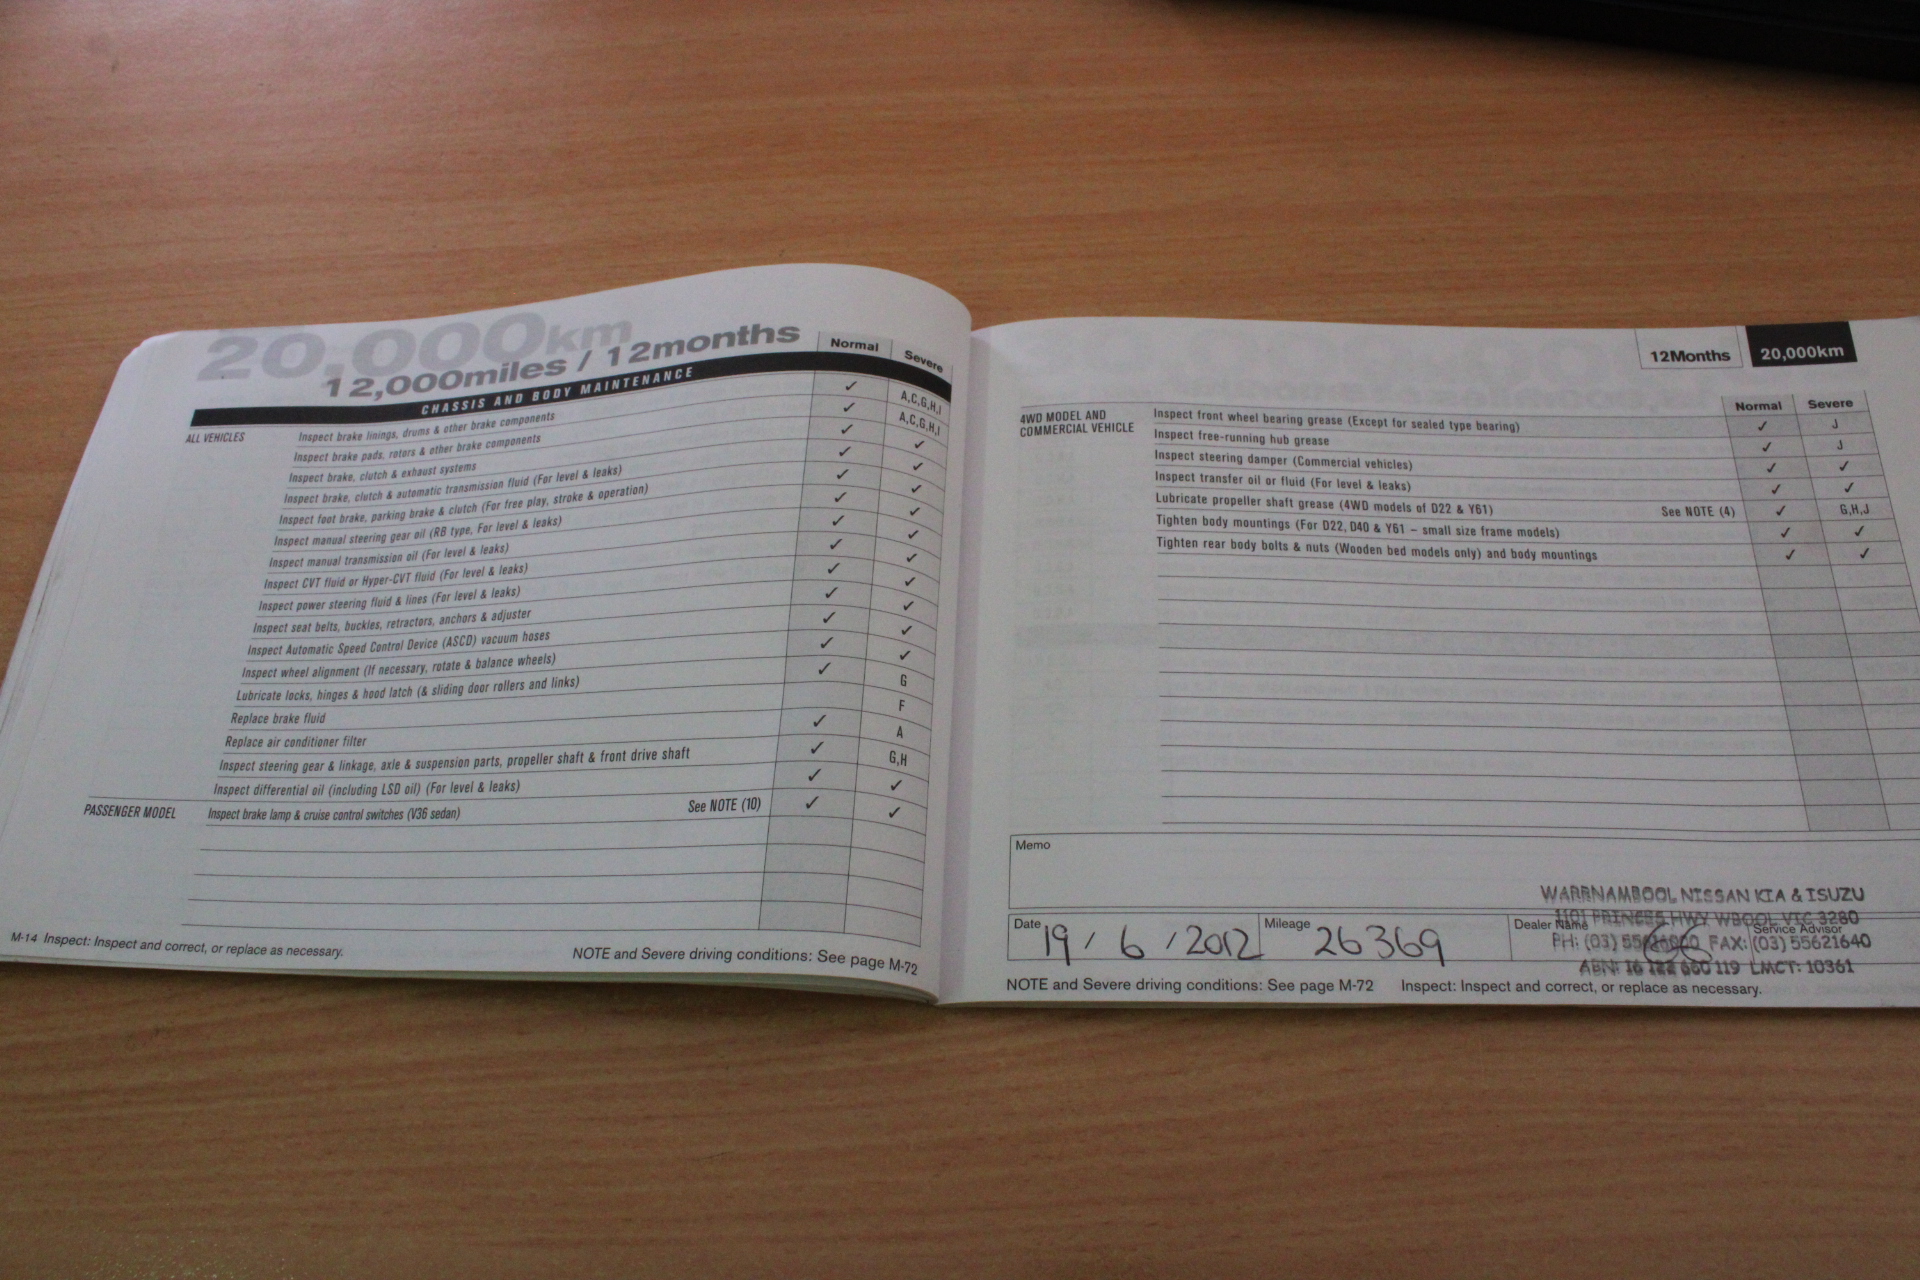 20,000km
12,000miles / 12months
Normal Severe
CHASSIS AND BODY MAINTENANCE
ALL VEHICLES Inspect brake linings, drums & other brake components ✓ A,C,G,H,I
Inspect brake pads, rotors & other brake components ✓ A,C,G,H,I
Inspect brake, clutch & exhaust systems ✓ ✓
Inspect brake, clutch & automatic transmission fluid (For level & leaks) ✓ ✓
Inspect foot brake, parking brake & clutch (For free play, stroke & operation) ✓ ✓
Inspect manual steering gear oil (RB type, For level & leaks) ✓ ✓
Inspect manual transmission oil (For level & leaks) ✓ ✓
Inspect CVT fluid or Hyper-CVT fluid (For level & leaks) ✓ ✓
Inspect power steering fluid & lines (For level & leaks) ✓ ✓
Inspect seat belts, buckles, retractors, anchors & adjuster ✓ ✓
Inspect Automatic Speed Control Device (ASCD) vacuum hoses ✓ ✓
Inspect wheel alignment (If necessary, rotate & balance wheels) ✓ ✓
Lubricate locks, hinges & hood latch (& sliding door rollers and links) ✓ G
Replace brake fluid F
Replace air conditioner filter ✓ A
Inspect steering gear & linkage, axle & suspension parts, propeller shaft & front drive shaft ✓ G,H
Inspect differential oil (including LSD oil) (For level & leaks) ✓ ✓
PASSENGER MODEL Inspect brake lamp & cruise control switches (V36 sedan) See NOTE (10) ✓ ✓
M-14 Inspect: Inspect and correct, or replace as necessary. NOTE and Severe driving conditions: See page M-72
12Months 20,000km
Normal Severe
4WD MODEL AND COMMERCIAL VEHICLE Inspect front wheel bearing grease (Except for sealed type bearing) ✓ J
Inspect free-running hub grease ✓ J
Inspect steering damper (Commercial vehicles) ✓ ✓
Inspect transfer oil or fluid (For level & leaks) ✓ ✓
Lubricate propeller shaft grease (4WD models of D22 & Y61) See NOTE (4) ✓ G,H,J
Tighten body mountings (For D22, D40 & Y61 – small size frame models) ✓ ✓
Tighten rear body bolts & nuts (Wooden bed models only) and body mountings ✓ ✓
Memo
WARRNAMBOOL NISSAN KIA & ISUZU
1101 PRINCES HWY WBOOL VIC 3280
Date 19 / 6 / 2012 Mileage 26369 Dealer Name Service Advisor
PH: (03) FAX: (03) 55621640
ABN: 16 119 LMCT: 10361
NOTE and Severe driving conditions: See page M-72 Inspect: Inspect and correct, or replace as necessary.